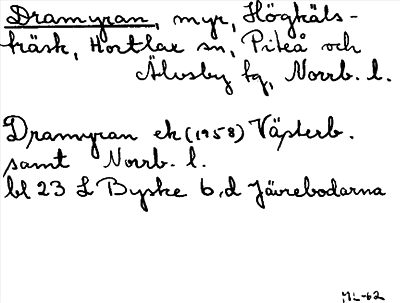 Dramyran, myr, Högkäls-
träsk, Hortlax sn, Piteå och
Älvsby tg, Norrb. l.
Dramyran ek (1958) Västerb.
samt Norrb. l.
bl 23 L Byske b, d Jävrebodarna
ML-62